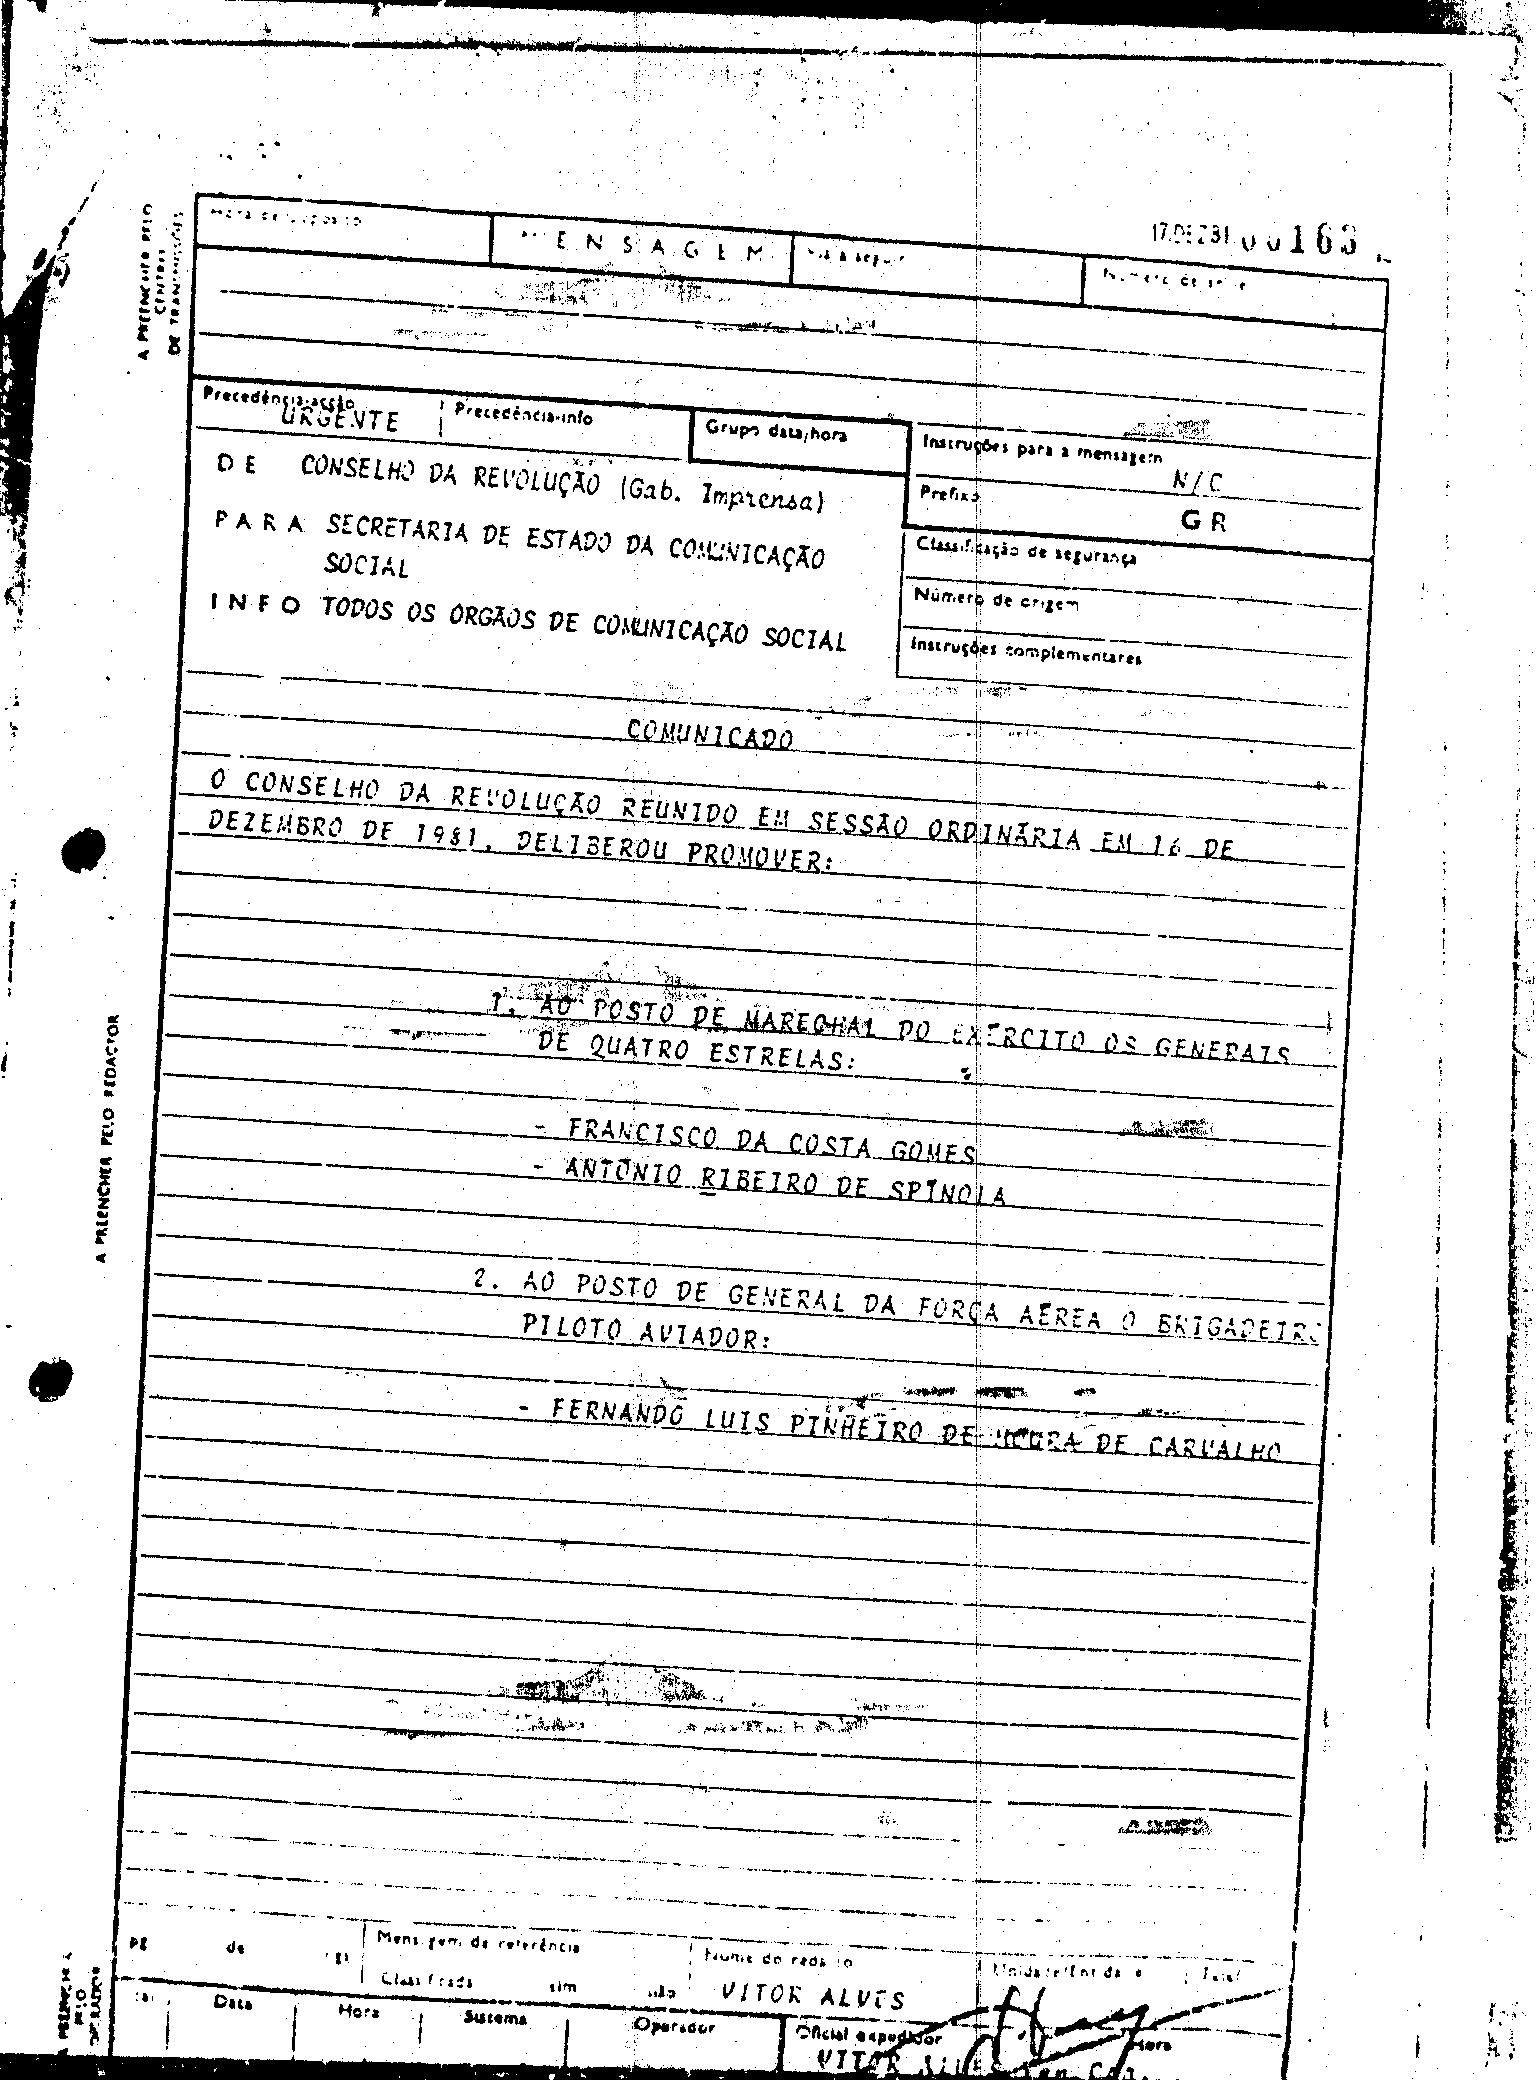 17.DEZ81 00163
MENSAGEM
A PREENCHER PELO
CENTRO
DE TRANSMISSÕES
Precedência-acção
URGENTE
Precedência-info
Grupo data/hora
Instruções para a mensagem
N/C
Prefixo
GR
Classificação de segurança
Número de origem
Instruções complementares
DE CONSELHO DA REVOLUÇÃO (Gab. Imprensa)
PARA SECRETARIA DE ESTADO DA COMUNICAÇÃO
SOCIAL
INFO TODOS OS ORGÃOS DE COMUNICAÇÃO SOCIAL
COMUNICADO
O CONSELHO DA REVOLUÇÃO REUNIDO EM SESSÃO ORDINÁRIA EM 16 DE
DEZEMBRO DE 1981, DELIBEROU PROMOVER:
1. AO POSTO DE MARECHAL DO EXÉRCITO OS GENERAIS
DE QUATRO ESTRELAS:
- FRANCISCO DA COSTA GOMES
- ANTÓNIO RIBEIRO DE SPÍNOLA
2. AO POSTO DE GENERAL DA FORÇA AÉREA O BRIGADEIRO
PILOTO AVIADOR:
- FERNANDO LUIS PINHEIRO DE MOURA DE CARVALHO
A PREENCHER PELO REDACTOR
de
Mensagem de referência
Classificada sim não
VITOR ALVES
Data
Hora
Sistema
Operador
Oficial expedidor
Hora
VITOR ALVES